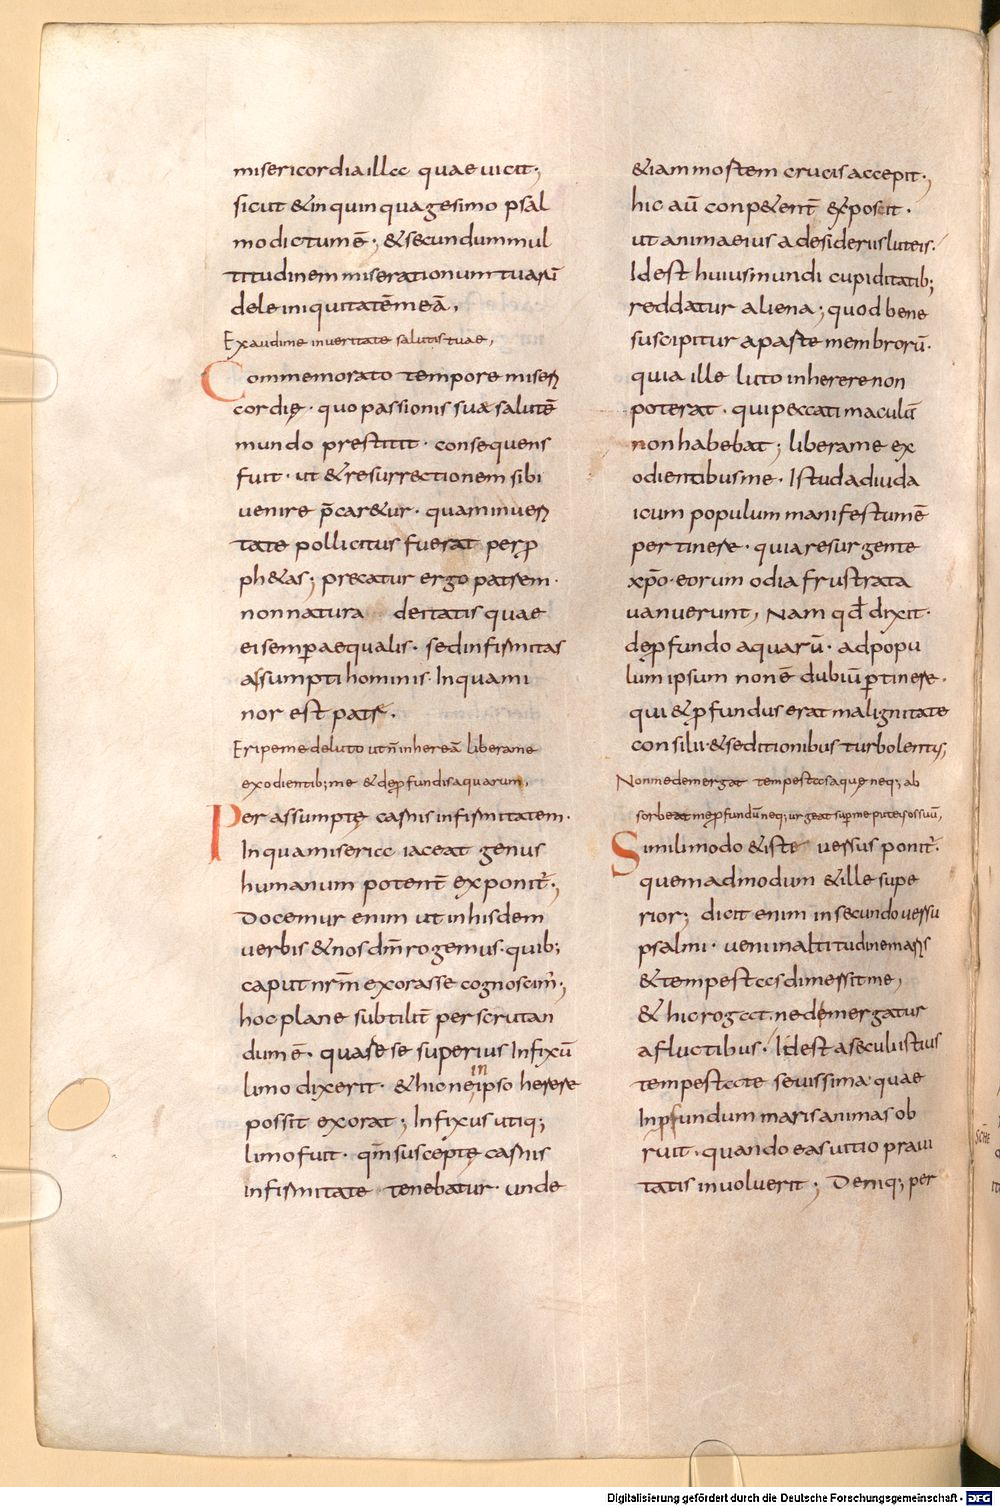 misericordia illa quae uicit;
sicut & in quinquagesimo psal
mo dictum ē; & secundum mul
titudinem miserationum tuarū
dele iniquitatē meā,
Exaudi me in ueritate salutis tuae,
Commemorato tempore miseri
cordię · quo passionis sua salutē
mundo prestitit · consequens
fuit · ut & resurrectionem sibi
uenire p̄car&ur · quam in ueri
tate pollicitus fuerat per ꝓ
ph&as; precatur ergo patrem ·
non natura deitatis quae
ei semꝑ aequalis · sed infirmitas
assumpti hominis · In qua mi
nor est patre.
Eripe me de luto ut n̄ inhereā libera me
ex odientib; me & de ꝓfundis aquarum,
Per assumptę carnis infirmitatem ·
In qua misericc iaceat genus
humanum potent̄ exponit̄;
Docemur enim ut in hisdem
uerbis & nos dn̄m rogemus · quib;
caput nr̄m exorasse cognoscim̄;
hoc plane subtilit̄ perscrutan
dum ē · quare se superius Infixū
limo dixerit · & hic ne in ipso herere
possit exorat; Infixus utiq;
limo fuit · qm̄ susceptę carnis
infirmitate tenebatur · unde
&iam mortem crucis accepit;
hic aū conp&ent̄ exposcit ·
ut anima eius a desideriis luteis ·
Id est huius mundi cupiditatib;
reddatur aliena; quod bene
suscipitur a parte membrorū ·
quia ille luto inherere non
poterat · qui peccati maculā
non habebat; libera me ex
odientibus me · Istud ad iuda
icum populum manifestum ē
pertinere · quia resurgente
xp̄o · eorum odia frustrata
uanuerunt, Nam qd̄ dixit ·
de ꝓfundo aquarū · ad popu
lum ipsum non ē dubiū ꝑtinere ·
qui & ꝓfundus erat malignitate
consilii · & seditionibus turbolentus;
Non me demergat tempestas aquę neq; ab
sorbeat me ꝓfundū neq; urgeat suꝑ me puteus os suū,
Simili modo & iste uersus ponit̄ ·
quemadmodum & ille supe
rior; dicit enim in secundo uersu
psalmi · ueni in altitudinem maris
& tempestas dimersit me,
& hic rogat · ne demergatur
a fluctibus · Id est a seculi istius
tempestate seuissima quae
In ꝓfundum maris animas ob
ruit · quando eas uitio praui
tatis inuoluerit; Demq; per